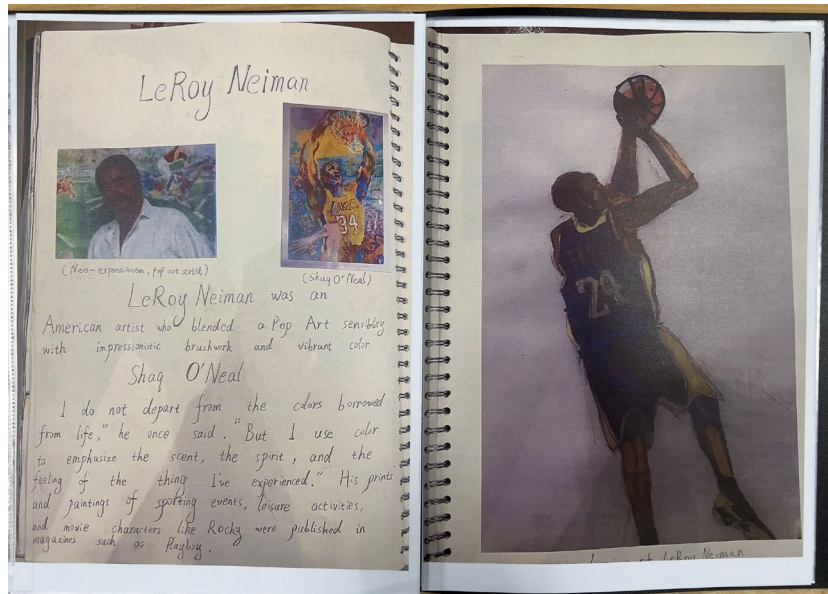 LeRoy Neiman
34
(Neo-expressionism, pop art artist)
(Shaq O'Neal)
LeRoy Neiman was an
American artist who blended a Pop Art sensiblity
with impressionistic brushwork and vibrant color
Shaq O'Neal
I do not depart from the colors borrowed
from life," he once said. "But I use color
to emphasize the scent, the spirit, and the
feeling of the thing I've experienced." His prints
and paintings of sporting events, leisure activities,
and movie characters like Rocky were published in
magazines such as Playboy.
24
LeRoy Neiman